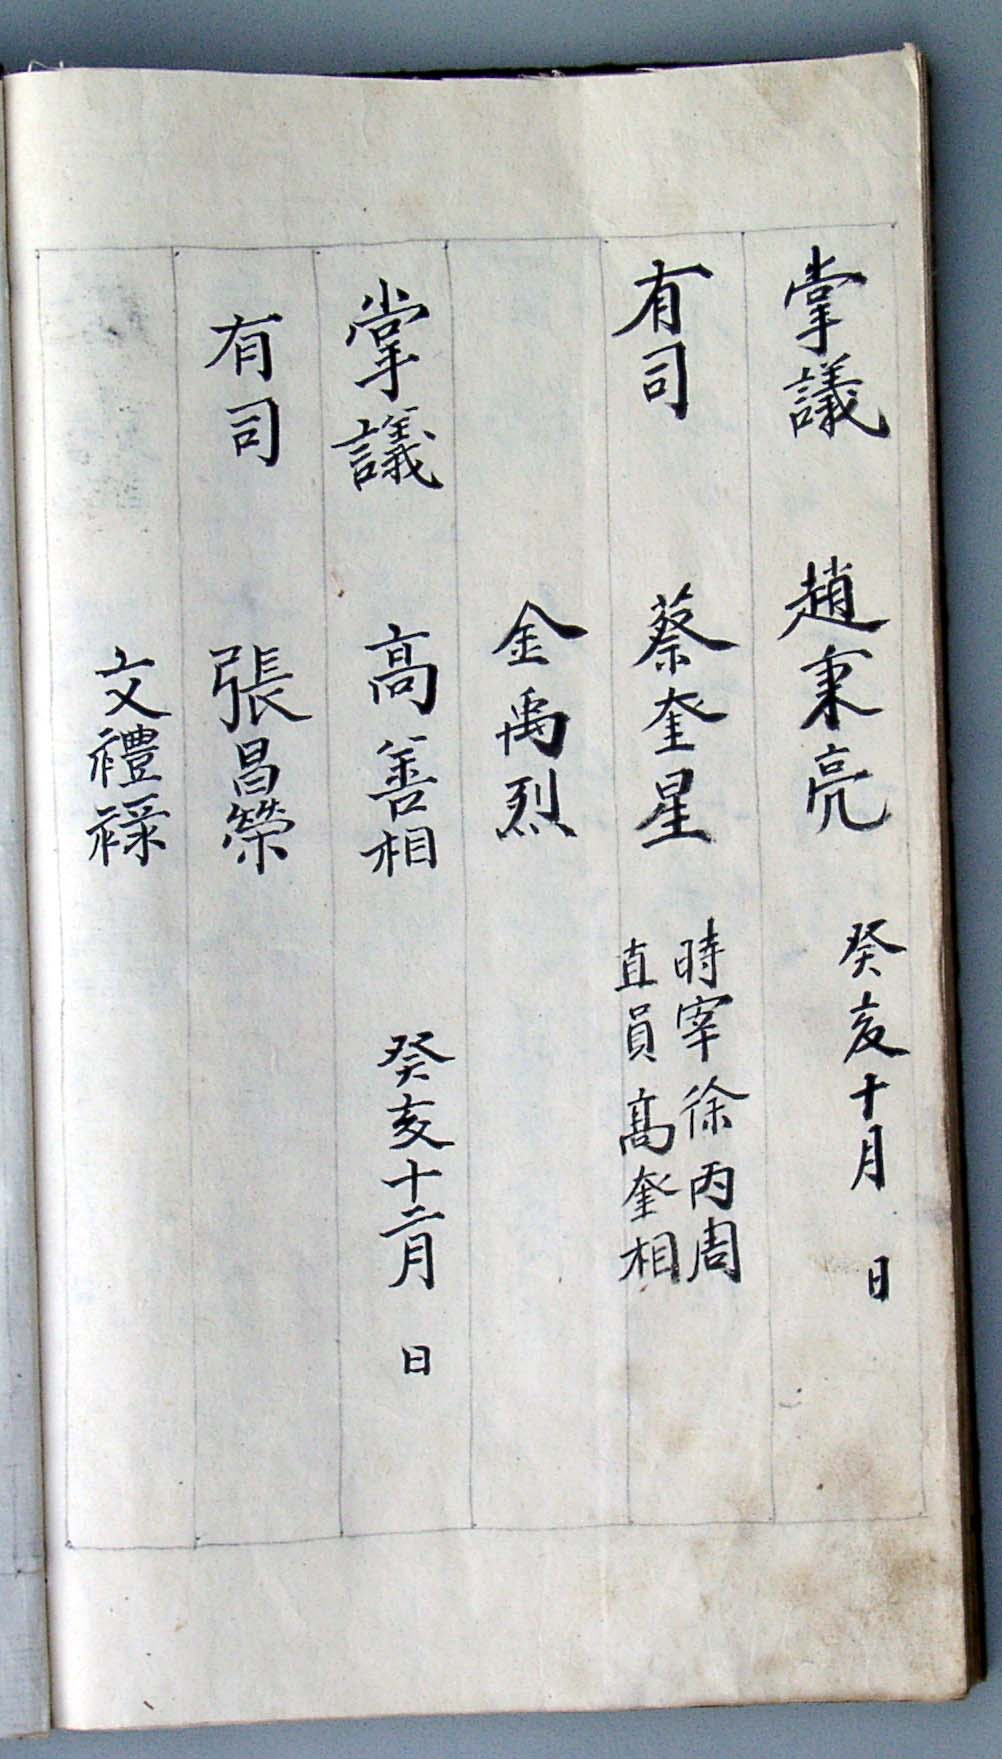 掌議 趙秉亮 癸亥十月 日
有司 蔡奎星 時宰 徐丙周
直員 高奎相
金禹烈
掌議 高善相 癸亥十二月 日
有司 張昌榮
文禮祿